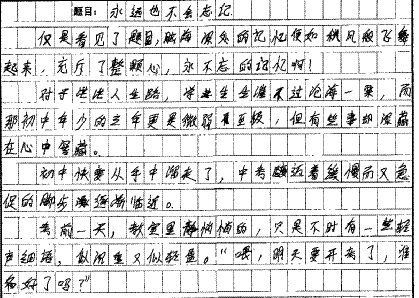 题目：永远也不会忘记
仅是看见了题目，脑海深处的记忆便如秋风般飞舞
起来，充斥了整颗心，永不忘的记忆啊！
对于茫茫人生路，学业生生涯不过沧海一粟，而
那初中年少的三年更是微弱至极，但有些事却深藏
在心中窖藏。
初中快要从手中溜走了，中考随近着缓慢而又急
促的脚步逐渐临近。
考前一天，教室里静悄悄的，只是不时有一些轻
声细语，似闲重又似轻盈。“喂，明天要开考了，准
备好了吗？”